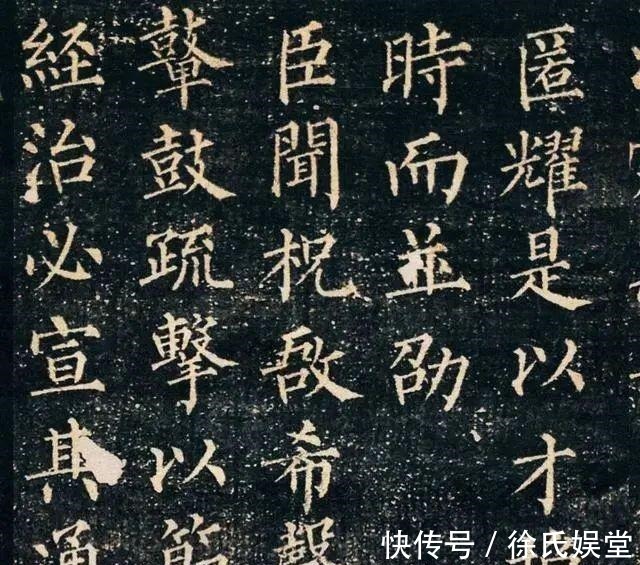 匿耀是以才
時而並劭
臣聞柷敔希聲
鼙鼓疏擊以節
経治必宣其通
快传号/徐氏娱堂